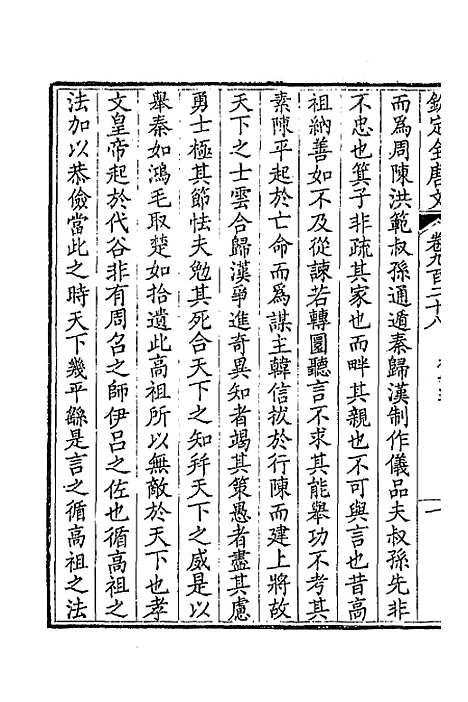 欽定全唐文
卷九百二十八
一
而爲周陳洪範叔孫通遁秦歸漢制作儀品夫叔孫先非
不忠也箕子非疏其家也而畔其親也不可與言也昔高
祖納善如不及從諫若轉圜聽言不求其能舉功不考其
素陳平起於亡命而爲謀主韓信拔於行陳而建上將故
天下之士雲合歸漢爭進奇異知者竭其策愚者盡其慮
勇士極其節怯夫勉其死合天下之知幷天下之威是以
舉秦如鴻毛取楚如拾遺此高祖所以無敵於天下也孝
文皇帝起於代谷非有周名之師伊呂之佐也循高祖之
法加以恭儉當此之時天下幾平繇是言之循高祖之法